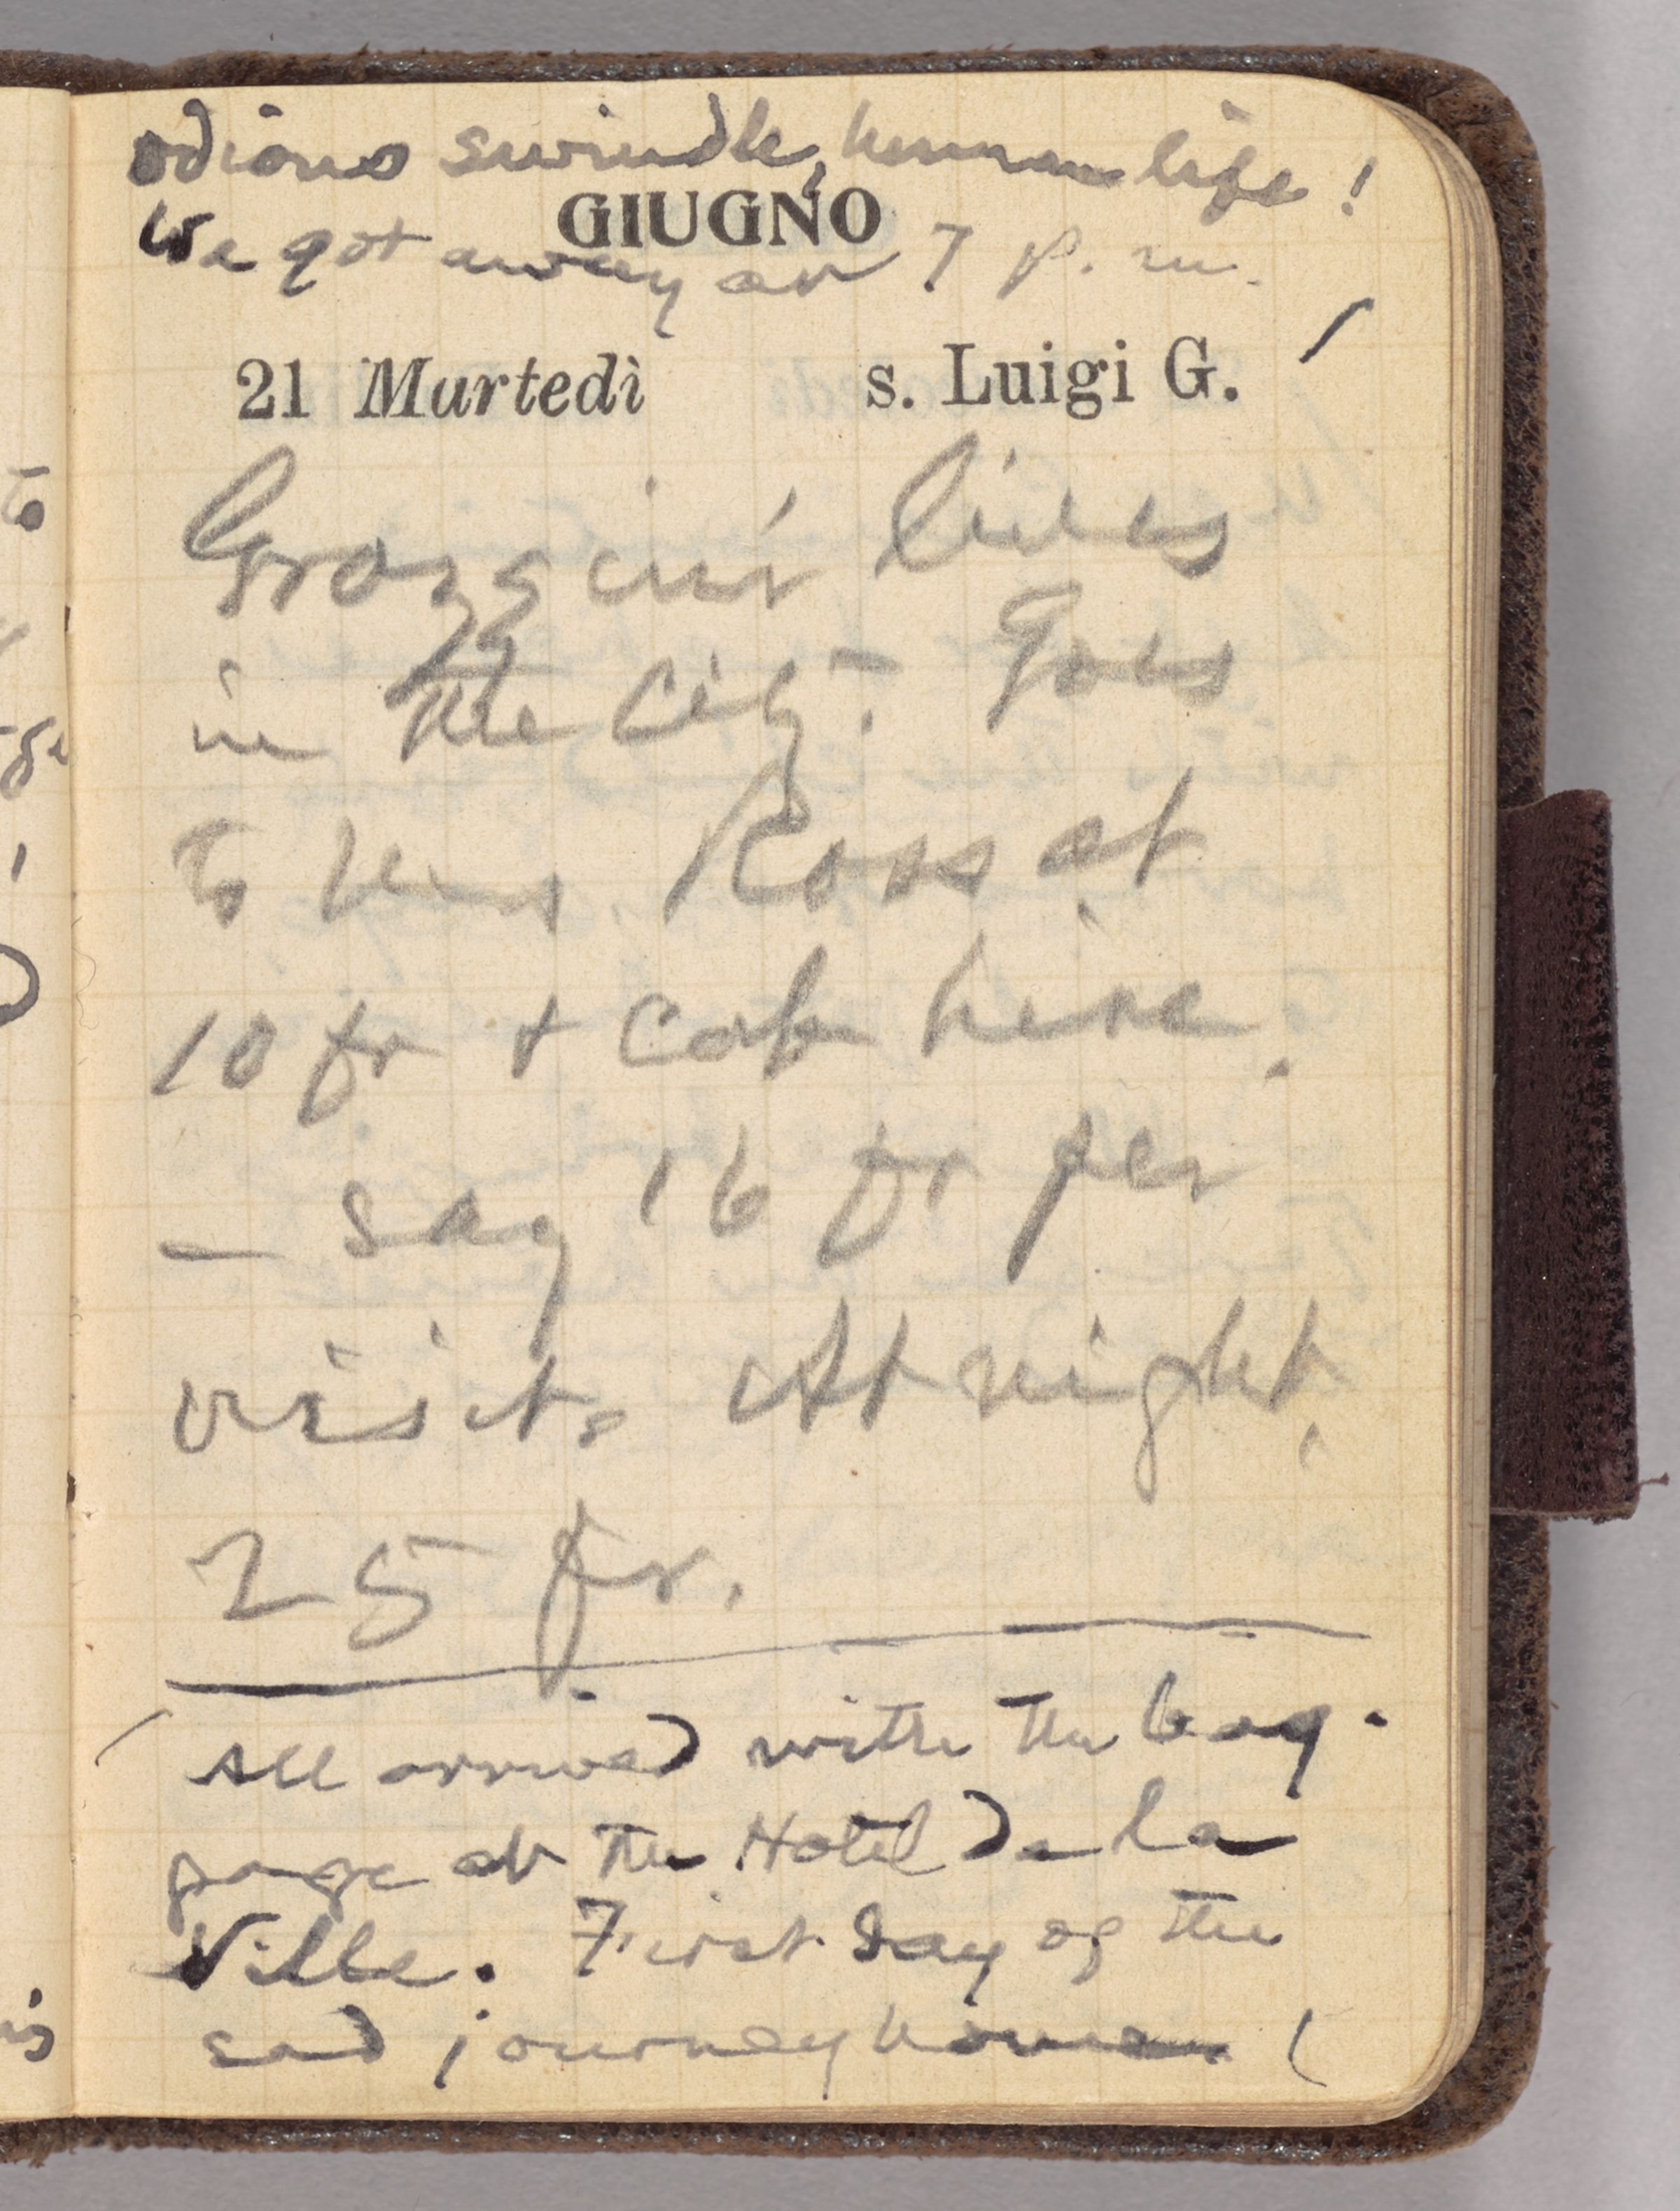 odious swindle, human life!
GIUGNO
We got away at 7 p. m.
21 Martedì s. Luigi G.
Grozzini lives
in the city. Goes
to Mrs Ross at
10 fr + cab hire.
— say 16 fr per
visit. At night,
25 fr.
All arrived with the bag-
gage at the Hotel de la
Ville. First day of the
sad journey home.